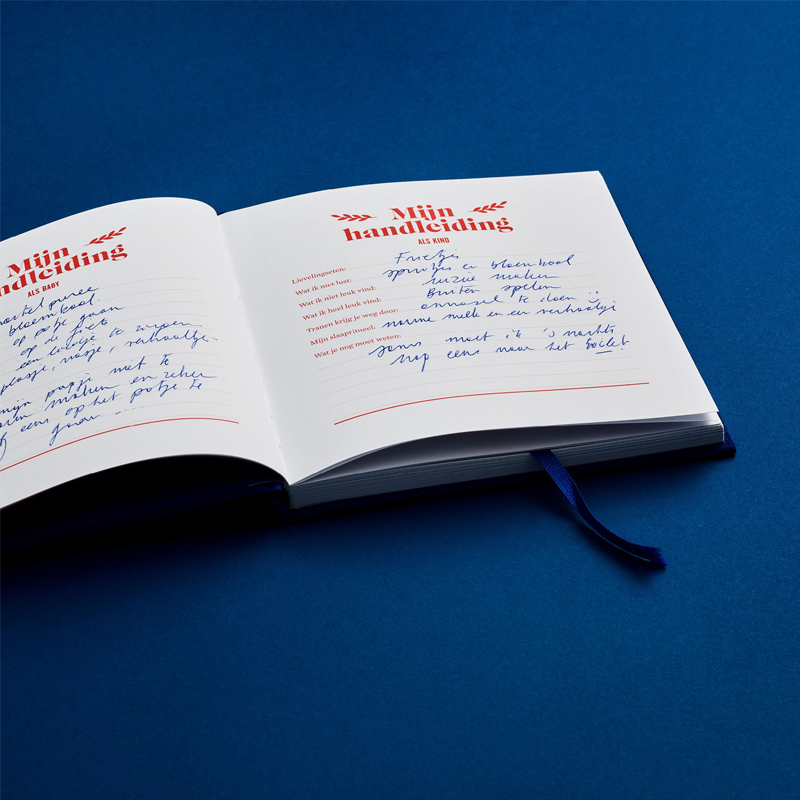 Mijn
ndleiding
ALS BABY
wortel puree
bloemkool.
op potje gaan
op de fiets
een liedje te zingen
plasje, nasje, verhaaltje.
mijn papje niet te
warm maken en zeker
eens op het potje te
gaan ...
Mijn
handleiding
ALS KIND
Lievelingseten: Frietjes
Wat ik niet lust: spruitjes en bloemkool
Wat ik niet leuk vind: ruzie maken
Wat ik heel leuk vind: Buiten spelen
Tranen krijg je weg door: onnozel te doen ..
Mijn slaapritueel: warme melk en een verhaaltje
Wat je nog moet weten: soms moet ik 's nachts
nog eens naar het toilet!